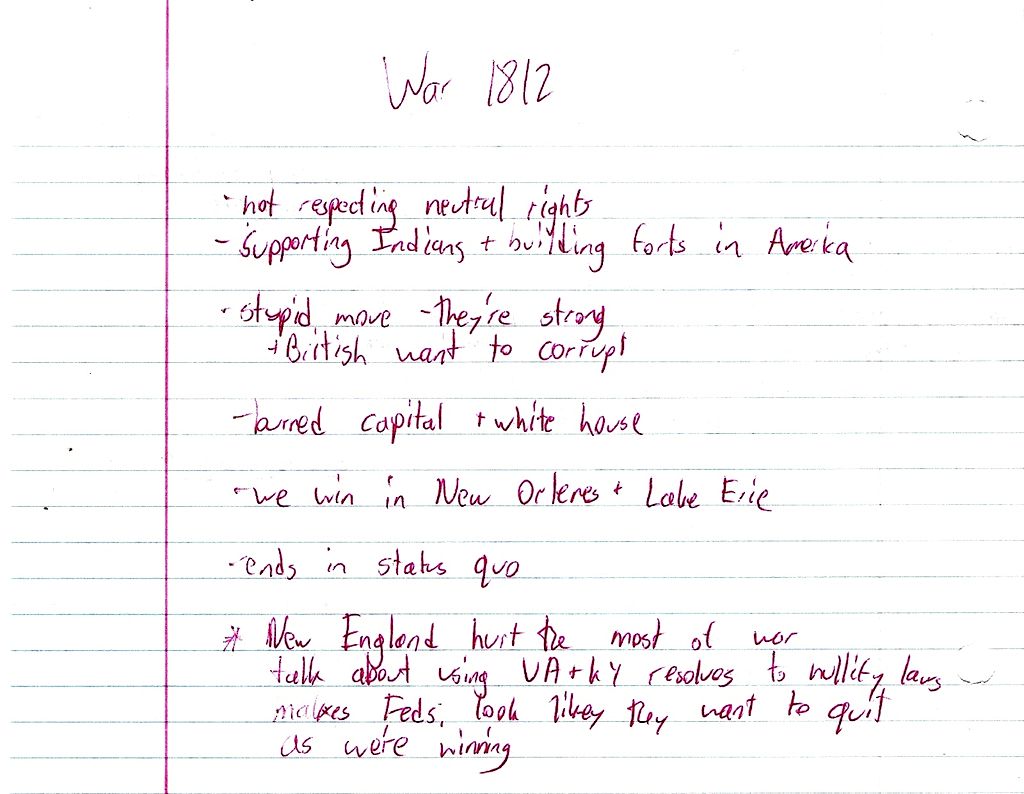 War 1812
- not respecting neutral rights
- supporting Indians + building forts in America
- stupid move - they're strong
+ British want to corrupt
- burned capital + white house
- we win in New Orlenes + Lake Erie
- ends in status quo
* New England hurt the most of war
talk about using VA + KY resolves to nullify laws
makes Feds. look likey they want to quit
as we're winning